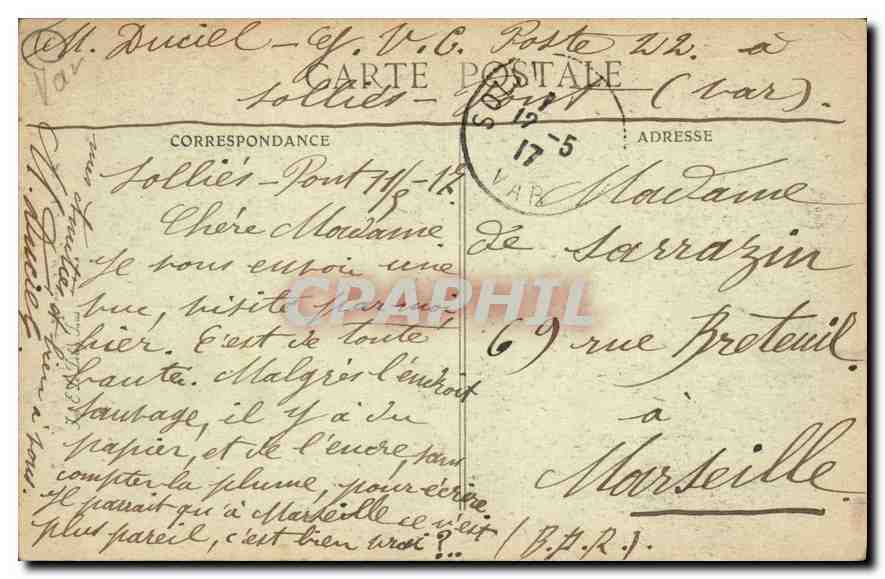 M. Duciel – G. V. C. Poste 22. a
CARTE POSTALE
Solliés – Pont – (Var).
Var
CORRESPONDANCE
Solliés – Pont 11/5 – 17.
Chére Madame
Je vous envoi une
vue, visité par moi
hier. C'est de toute
bauté. Malgrés l'endroit
sauvage, il y a du
papier, et de l'encre, sans
compter la plume, pour écrire
Je parrait qu'à Marseille ce n'est
plus pareil, c'est bien vrai ?...
mes Amitiés et bien à vous.
M. Duciel.
SOL
12 – 5
17
VAR
ADRESSE
Madame
de Sarrazin
69 rue Breteuil.
à
Marseille
(B.d.R.).
CRAPHIL